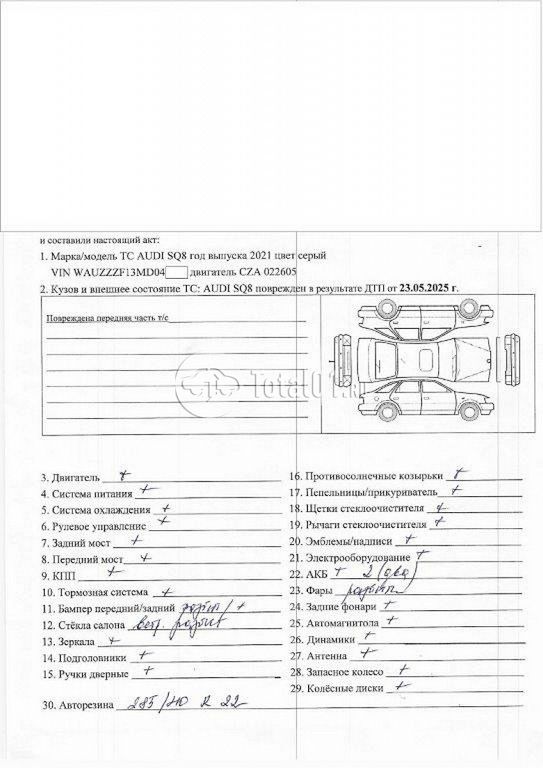 и составили настоящий акт:
1. Марка/модель ТС AUDI SQ8 год выпуска 2021 цвет серый
VIN WAUZZZF13MD04 двигатель CZA 022605
2. Кузов и внешнее состояние ТС: AUDI SQ8 поврежден в результате ДТП от 23.05.2025 г.
Повреждена передняя часть т/с
Total01.ru
3. Двигатель +
4. Система питания +
5. Система охлаждения +
6. Рулевое управление +
7. Задний мост +
8. Передний мост +
9. КПП +
10. Тормозная система +
11. Бампер передний/задний / +
12. Стёкла салона
13. Зеркала +
14. Подголовники +
15. Ручки дверные +
16. Противосолнечные козырьки +
17. Пепельницы/прикуриватель +
18. Щетки стеклоочистителя +
19. Рычаги стеклоочистителя +
20. Эмблемы/надписи +
21. Электрооборудование +
22. АКБ + 2 (два)
23. Фары
24. Задние фонари +
25. Автомагнитола +
26. Динамики +
27. Антенна +
28. Запасное колесо +
29. Колёсные диски +
30. Авторезина 285/40 R 22